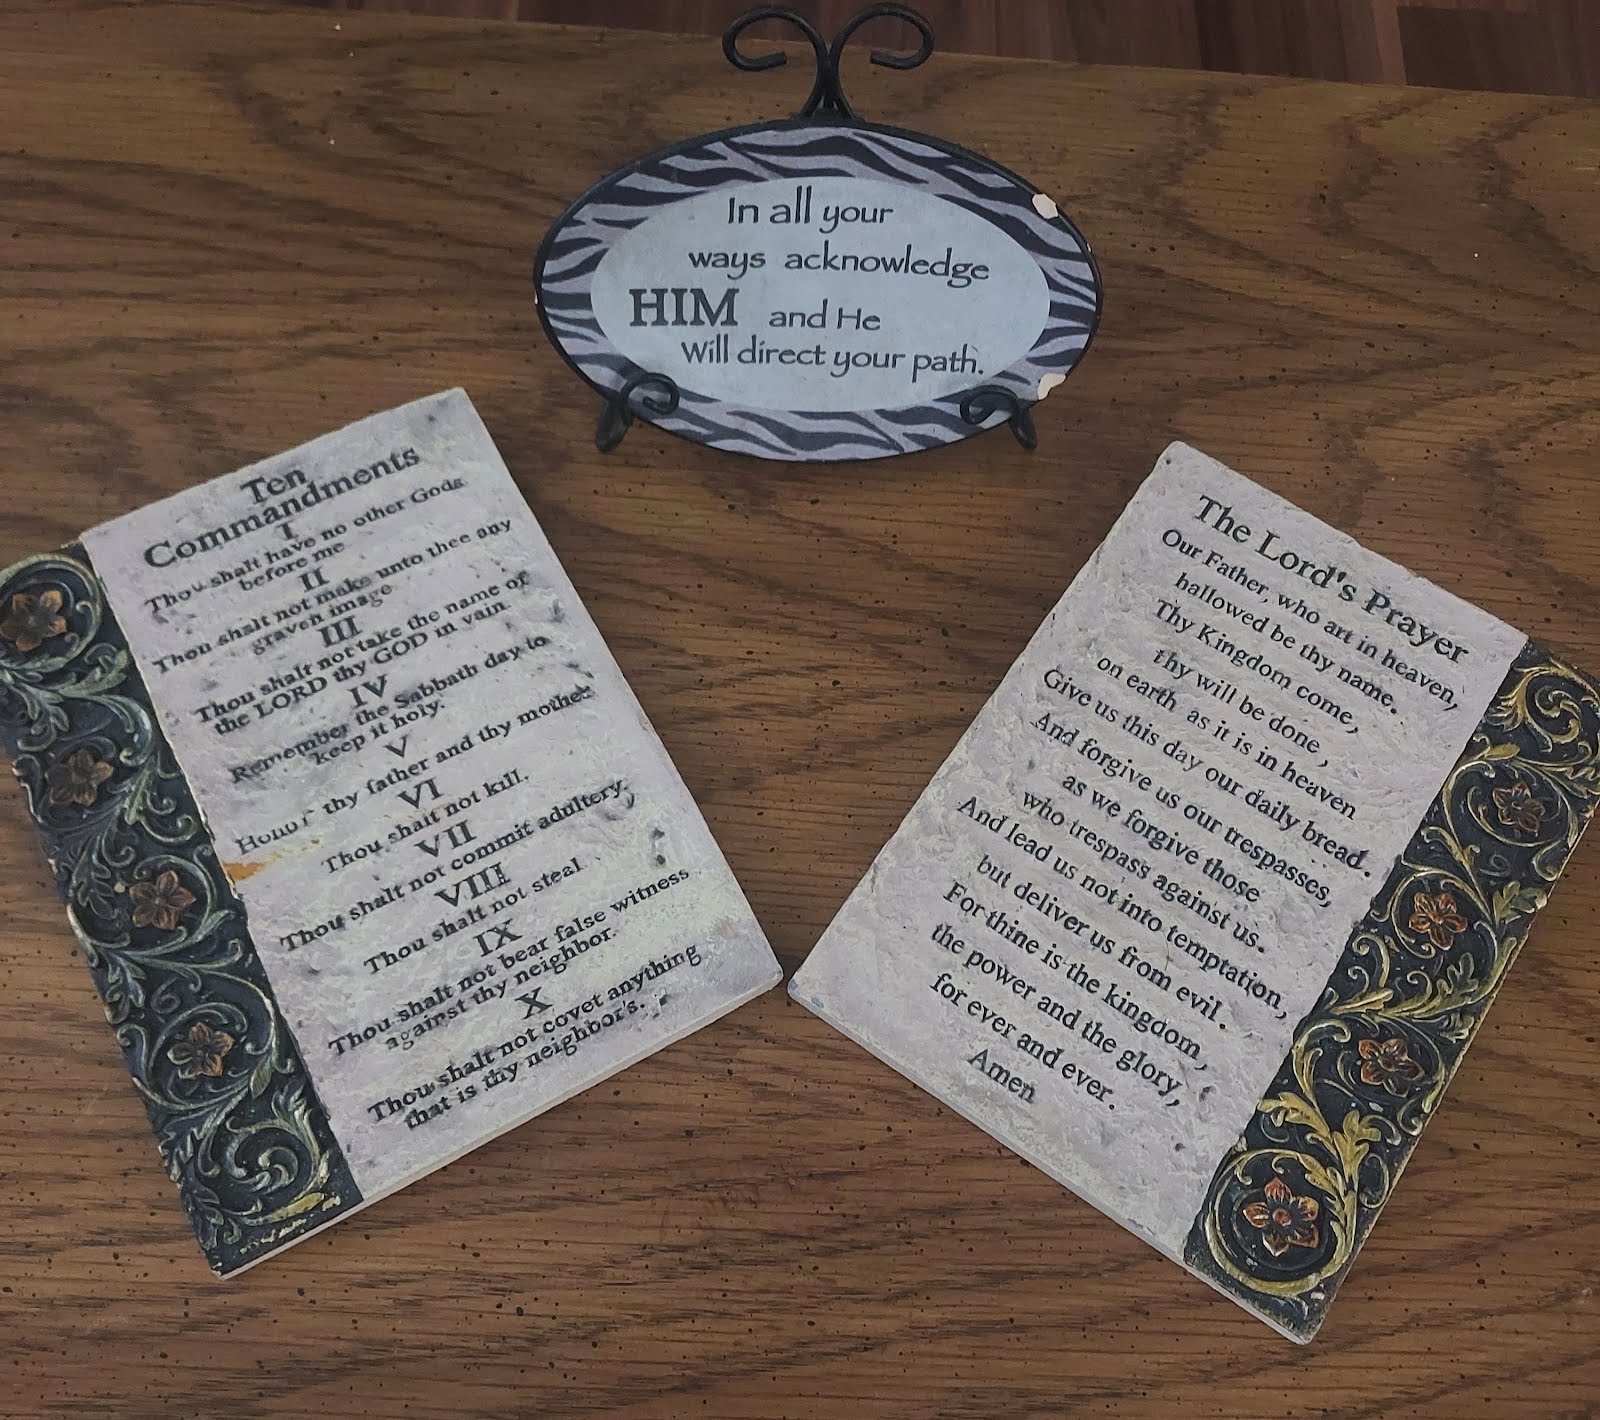 In all your
ways acknowledge
HIM and He
Will direct your path.
Ten
Commandments
I
Thou shalt have no other Gods
before me
II
Thou shalt not make unto thee any
graven image
III
Thou shalt not take the name of
the LORD thy GOD in vain.
IV
Remember the Sabbath day to
keep it holy.
V
Honor thy father and thy mother
VI
Thou shalt not kill.
VII
Thou shalt not commit adultery.
VIII
Thou shalt not steal
IX
Thou shalt not bear false witness
against thy neighbor.
X
Thou shalt not covet anything
that is thy neighbor's.
The Lord's Prayer
Our Father, who art in heaven,
hallowed be thy name.
Thy Kingdom come,
thy will be done,
on earth as it is in heaven
Give us this day our daily bread.
And forgive us our trespasses,
as we forgive those
who trespass against us.
And lead us not into temptation,
but deliver us from evil.
For thine is the kingdom,
the power and the glory,
for ever and ever.
Amen